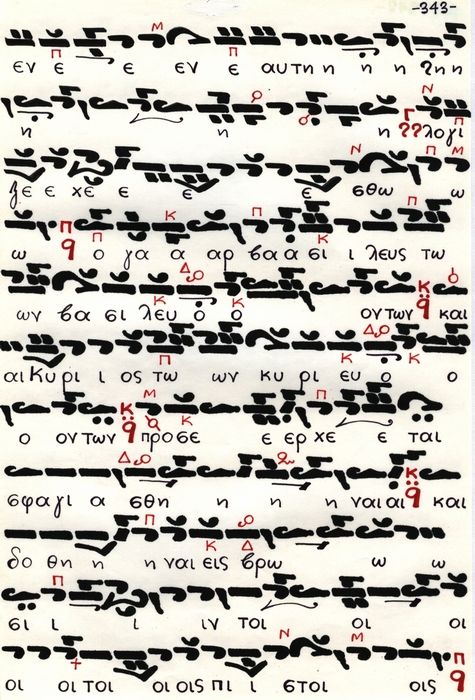 -343-
εν ε ε εν ε αυτη η η η ?η η
η η η ??λογι
ζε ε χε ε ε ε σθω ω
ω ο γα α αρ βα α σι ι λευς τω
ων βα σι λευ ο ο ον των και
αι Κυ ρι ι ος τω ων κυ ρι ευ ο ο
ο ον των προσε ε ερ χε ε ται
σφαγι α σθη η η η ναι αι και
δο θη η η ναι εις βρω ω ω
σι ι ι ιν τοι οι οι
οι οι τοι οι οις πι ι στοι οις